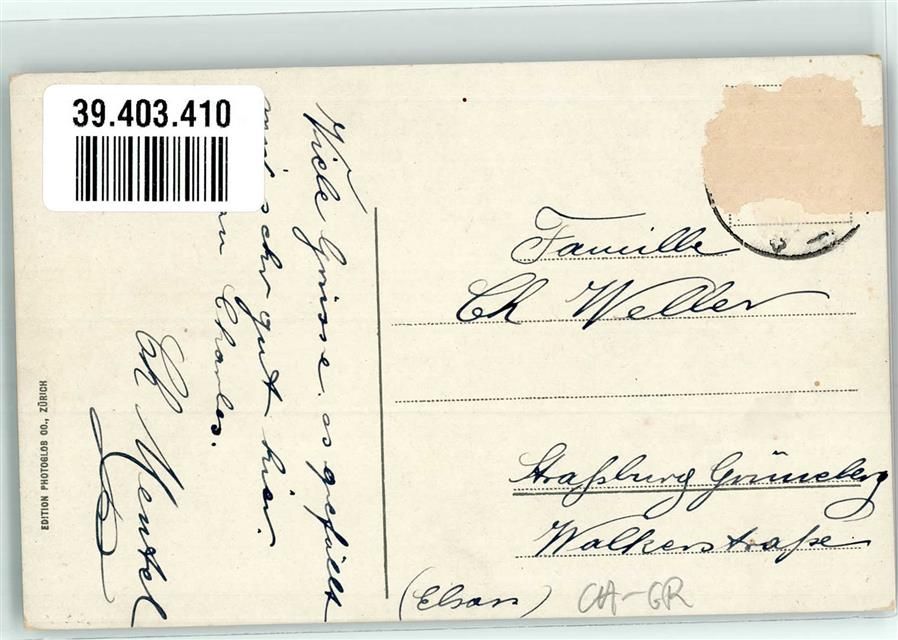 39.403.410
Viele Grüsse. es gefällt
mir sehr gut hier.
Charles.
Ch Mentel
EDITION PHOTOGLOB CO., ZÜRICH
Famille
Ch Weller
Straßburg Grüneberg
Walkerstraße
(Elsass)
CH-GR